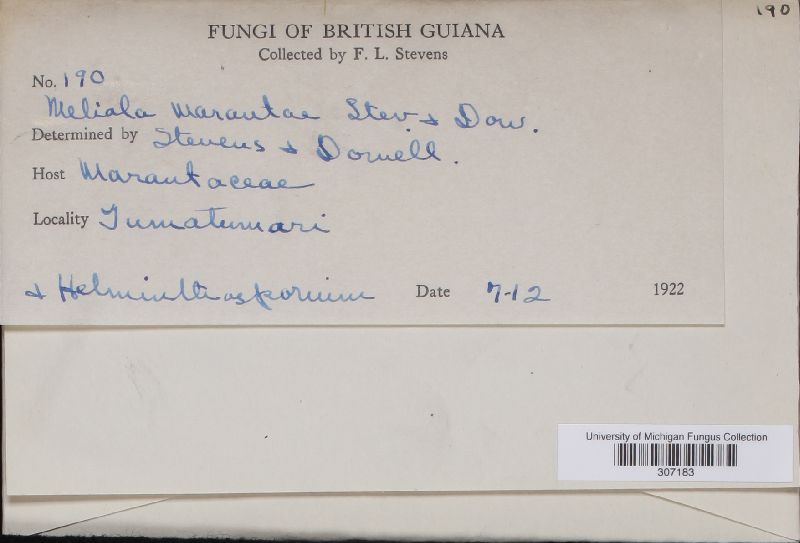 190
FUNGI OF BRITISH GUIANA
Collected by F. L. Stevens
No. 190
Meliola Marantae Stev. & Dow.
Determined by Stevens & Dowell.
Host Marantaceae
Locality Tumatumari
& Helminthosporium Date 7-12 1922
University of Michigan Fungus Collection
307183